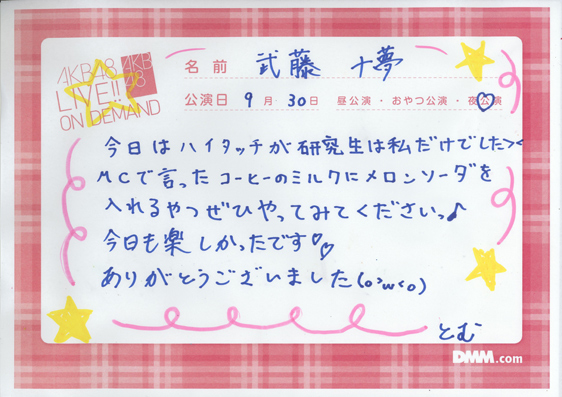 AKB48
LIVE!!
ON DEMAND
AKB
48
名前 武藤 十夢
公演日 9月30日 昼公演・おやつ公演・夜公演
今日はハイタッチが研究生は私だけでした><
MCで言ったコーヒーのミルクにメロンソーダを
入れるやつぜひやってみてくださいっ♪
今日も楽しかったです♡♡
ありがとうございました(o>w<o)
とむ
DMM.com